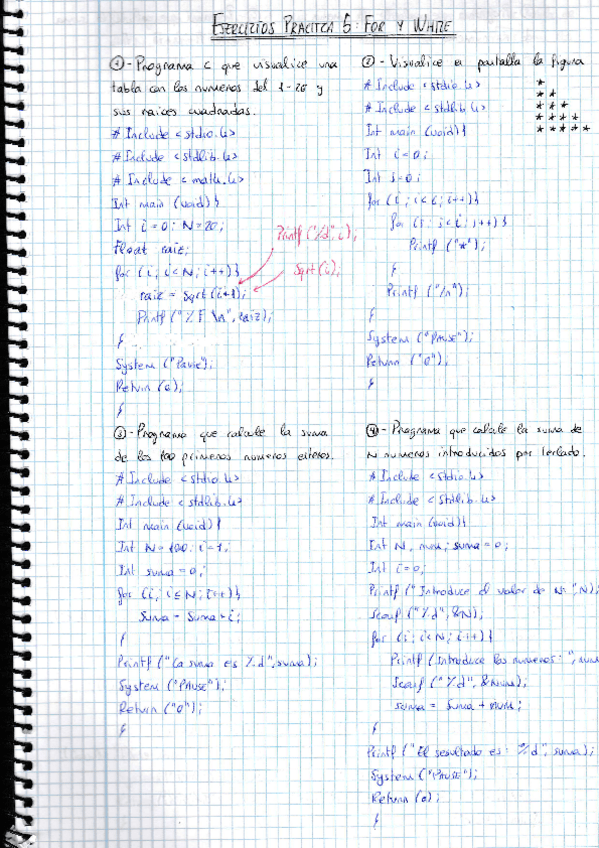 EJERCICIOS PRACTICA 5: FOR Y WHILE
① - Programa C que visualice una
tabla con los numeros del 1-20 y
sus raices cuadradas.
# Include <stdio.h>
# Include <stdlib.h>
# Include <math.h>
Int main (void) {
Int i = 0; N = 20;
Float raiz;
for (i; i < N; i++) {
Printf ("%d", i);
Sqrt (i);
raiz = Sqrt (i+1);
Printf ("%F \n", raiz);
}
System ("Pause");
Return (0);
}
② - Visualice a pantalla la figura
*
* *
* * *
* * * *
* * * * *
# Include <stdio.h>
# Include <stdlib.h>
Int main (void) {
Int i = 0;
Int j = 0;
for (i; i < 6; i++) {
for (j; j < i; j++) {
Printf ("*");
}
Printf ("/n");
}
System ("Pause");
Return ("0");
}
③ - Programa que calcule la suma
de los 100 primeros numeros enteros.
# Include <stdio.h>
# Include <stdlib.h>
Int main (void) {
Int N = 100; i = 1;
Int suma = 0;
for (i; i ≤ N; i++) {
Suma = Suma + i;
}
Printf ("La suma es %d", suma);
System ("Pause");
Return ("0");
}
④ - Programa que calcule la suma de
N numeros introducidos por teclado.
# Include <stdio.h>
# Include <stdlib.h>
Int main (void) {
Int N, num; suma = 0;
Int i = 0;
Printf ("Introduce el valor de N: ", N);
Scanf ("%d", &N);
for (i; i < N; i++) {
Printf (Introduce los numeros: ", num
Scanf ("%d", &Num);
suma = Suma + num;
}
Printf ("El resultado es: %d", suma);
System ("Pause");
Return (0);
}